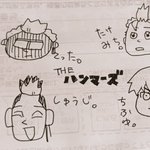 たった。
たけみち。
THE
ハンマーズ
しゅうじ。
ちふゆ。